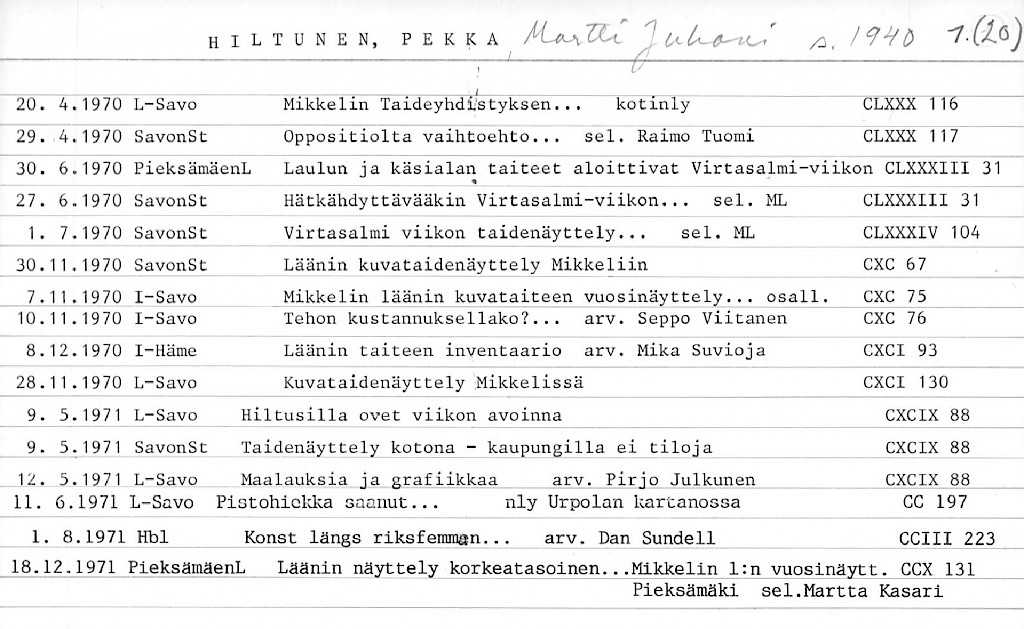 HILTUNEN, PEKKA, Martti Juhani s. 1940 1.(20)
20. 4.1970 L-Savo Mikkelin Taideyhdistyksen... kotinly CLXXX 116
29. 4.1970 SavonSt Oppositiolta vaihtoehto... sel. Raimo Tuomi CLXXX 117
30. 6.1970 PieksämäenL Laulun ja käsialan taiteet aloittivat Virtasalmi-viikon CLXXXIII 31
27. 6.1970 SavonSt Hätkähdyttävääkin Virtasalmi-viikon... sel. ML CLXXXIII 31
1. 7.1970 SavonSt Virtasalmi viikon taidenäyttely... sel. ML CLXXXIV 104
30.11.1970 SavonSt Läänin kuvataidenäyttely Mikkeliin CXC 67
7.11.1970 I-Savo Mikkelin läänin kuvataiteen vuosinäyttely... osall. CXC 75
10.11.1970 I-Savo Tehon kustannuksellako?... arv. Seppo Viitanen CXC 76
8.12.1970 I-Häme Läänin taiteen inventaario arv. Mika Suvioja CXCI 93
28.11.1970 L-Savo Kuvataidenäyttely Mikkelissä CXCI 130
9. 5.1971 L-Savo Hiltusilla ovet viikon avoinna CXCIX 88
9. 5.1971 SavonSt Taidenäyttely kotona - kaupungilla ei tiloja CXCIX 88
12. 5.1971 L-Savo Maalauksia ja grafiikkaa arv. Pirjo Julkunen CXCIX 88
11. 6.1971 L-Savo Pistohiekka saanut... nly Urpolan kartanossa CC 197
1. 8.1971 Hbl Konst längs riksfemman... arv. Dan Sundell CCIII 223
18.12.1971 PieksämäenL Läänin näyttely korkeatasoinen...Mikkelin l:n vuosinäytt. CCX 131
Pieksämäki sel.Martta Kasari